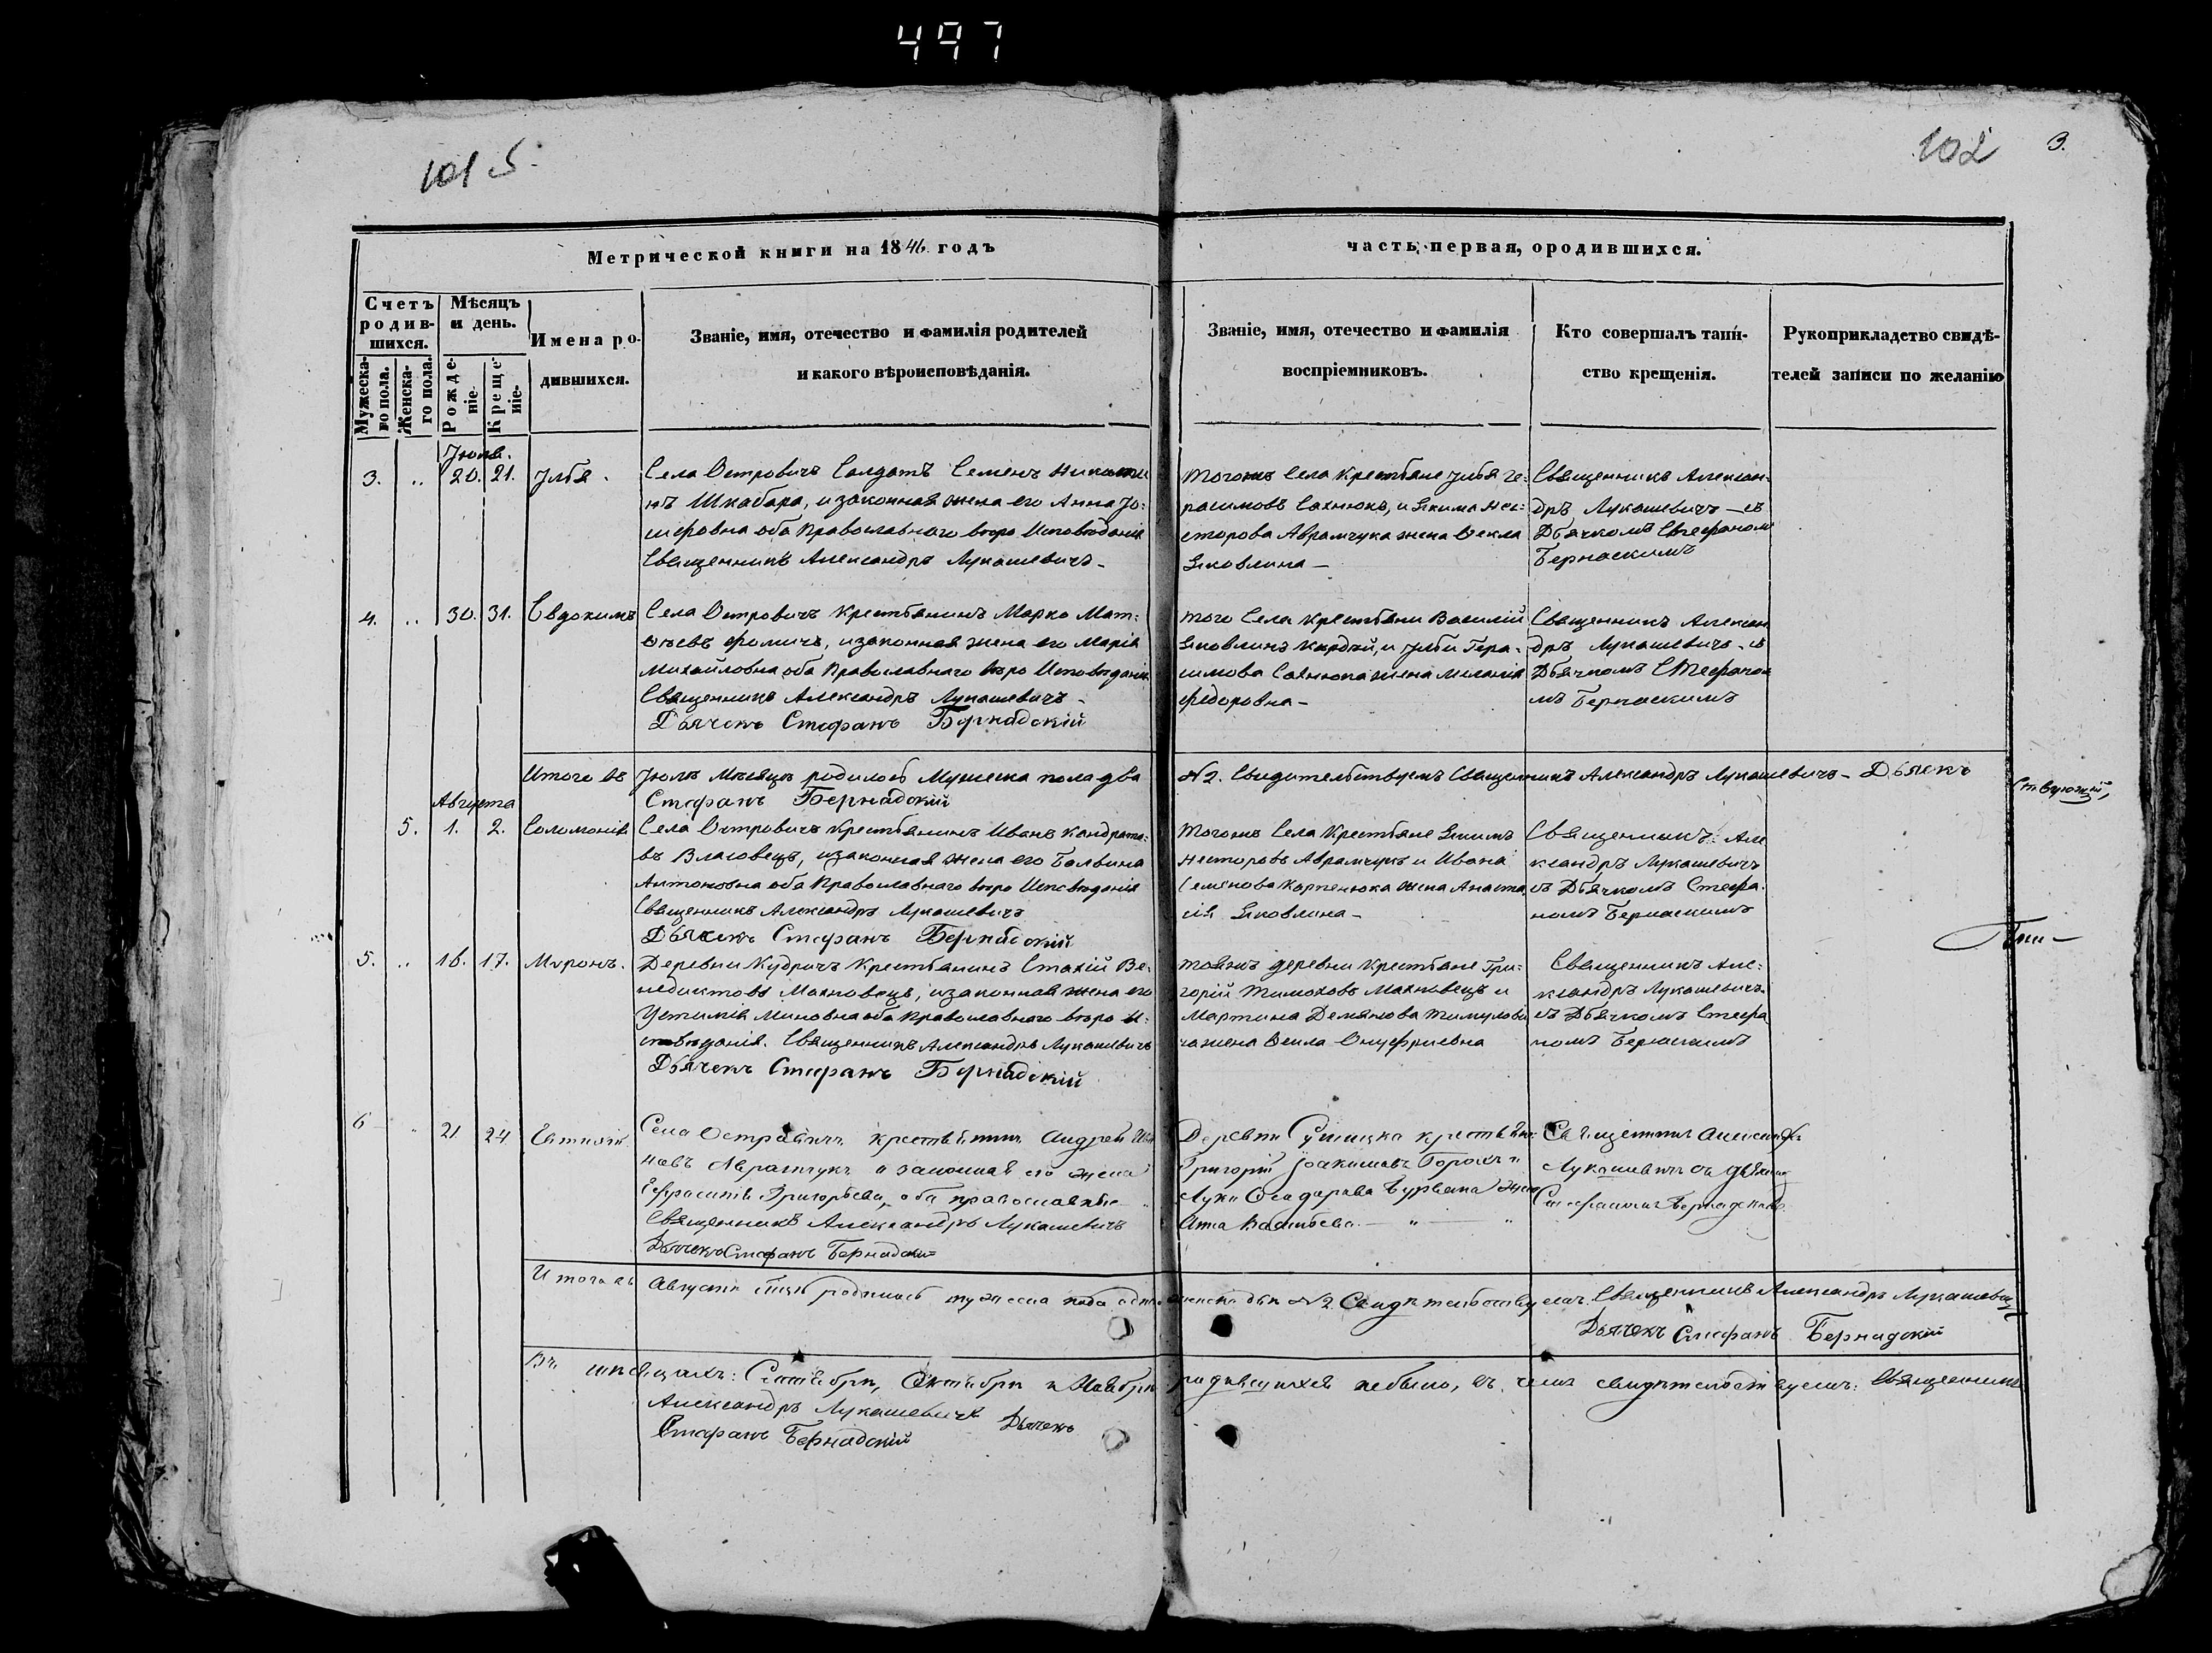 497
101 5.
102 3.
Метрической книги на 1846 годъ
часть первая, ородившихся.
Счетъ родив-
шихся.
Мужеска-
го пола.
Женска-
го пола.
Мѣсяцъ
и день.
Рожде-
ніе.
Креще-
ніе.
Имена ро-
дившихся.
Званіе, имя, отечество и фамилія родителей
и какого вѣроисповѣданія.
Званіе, имя, отечество и фамилія
воспріемниковъ.
Кто совершалъ таин-
ство крещенія.
Рукоприкладство свидѣ-
телей записи по желанію
Іюля.
3. „ 20. 21. Илья.
Села Островичъ Солдатъ Семенъ Никити
нъ Шкабара, изаконная жена его Анна Іо-
сифовна оба Православнаго вѣро Исповѣданія
Священникъ Александръ Лукашевичъ-
Тогожъ Села Крестьяне Илья Ге-
расимовъ Сахнюкъ, и Якима Нес-
торова Аврамчука жена Ѳекла
Яковлина-
Священникъ Алексан-
дръ Лукашевичъ - съ
Дьячкомъ Стефаномъ
Бернаскимъ
4. „ 30. 31. Евдокимъ
Села Островичъ Крестьянинъ Марко Мат-
ѳѣевъ Фомичъ, изаконная жена его Марія
Михайловна оба Православнаго вѣро Исповѣданія
Священникъ Александръ Лукашевичъ-
Дьячекъ Стефанъ Бернадскій
Того Села Крестьяни Василій
Яковлинъ, и Ильи Гера-
симова Сахнюка жена Меланія
Федоровна-
Священникъ Алексан
дръ Лукашевичъ - съ
Дьячкомъ Стефано
мъ Бернаскимъ
Итого въ Іюлѣ Мѣсяцѣ родилось Мужеска пола два
№ 2. Свидетельствуемъ Священникъ Александръ Лукашевичъ- Дьячекъ
Стефанъ Бернадскій
Августа
5. 1. 2. Соломонія
Села Островичъ Крестьянинъ Иванъ Кандрато-
въ Власовецъ, изаконная жена его
Антоновна оба Православнаго вѣро Исповѣданія
Священникъ Александръ Лукашевичъ
Дьячекъ Стефанъ Бернадскій
Тогожъ Села Крестьяне Якимъ
Несторовъ Аврамчукъ и Ивана
Семенова Карпенюка жена Анаста
сія Яковлина-
Священникъ Але
ксандръ Лукашевичъ
съ Дьячкомъ Стефа-
номъ Бернаскимъ
5. „ 16. 17. Миронъ.
Деревни Кудричъ Крестьянинъ Стахій Ве-
недиктовъ Махновецъ, изаконная жена его
Устинія Миновна оба Православнаго вѣро И-
сповѣданія. Священникъ Александръ Лукашевичъ
Дьячекъ Стефанъ Бернадскій
Тояжъ деревни Крестьяне Гри-
горій Тимоховъ Махновецъ и
Мартина Демянова
жена Ѳекла Онуфриевна
Священникъ Але-
ксандръ Лукашевичъ
съ Дьячкомъ Стефа
номъ Бернаскимъ
6 „ 21 24
Села Островичъ крестьянинъ Андрей Ива
новъ Аврамчукъ и законная его жена
Ефросинія Григорьева, оба православные
Священникъ Александръ Лукашевичъ
Дьячекъ Стефанъ Бернадскій
Деревни крестьяне
Григорій Іоакимовъ и
Луки жена
Анна Васильева
Священникъ Александръ
Лукашевичъ съ дьячкомъ
Стефаномъ Бернадскимъ
Итого въ Августѣ родилось мужеска пола №2 Свидѣтельствуемъ. Священникъ Александръ Лукашевичъ
Дьячекъ Стефанъ Бернадскій
Въ мѣсяцахъ: Сентябри, Октябри и Ноябри родившихся небыло, въ чемъ свидѣтельствуемъ: Священникъ
Александръ Лукашевичъ Дьячекъ
Стефанъ Бернадскій